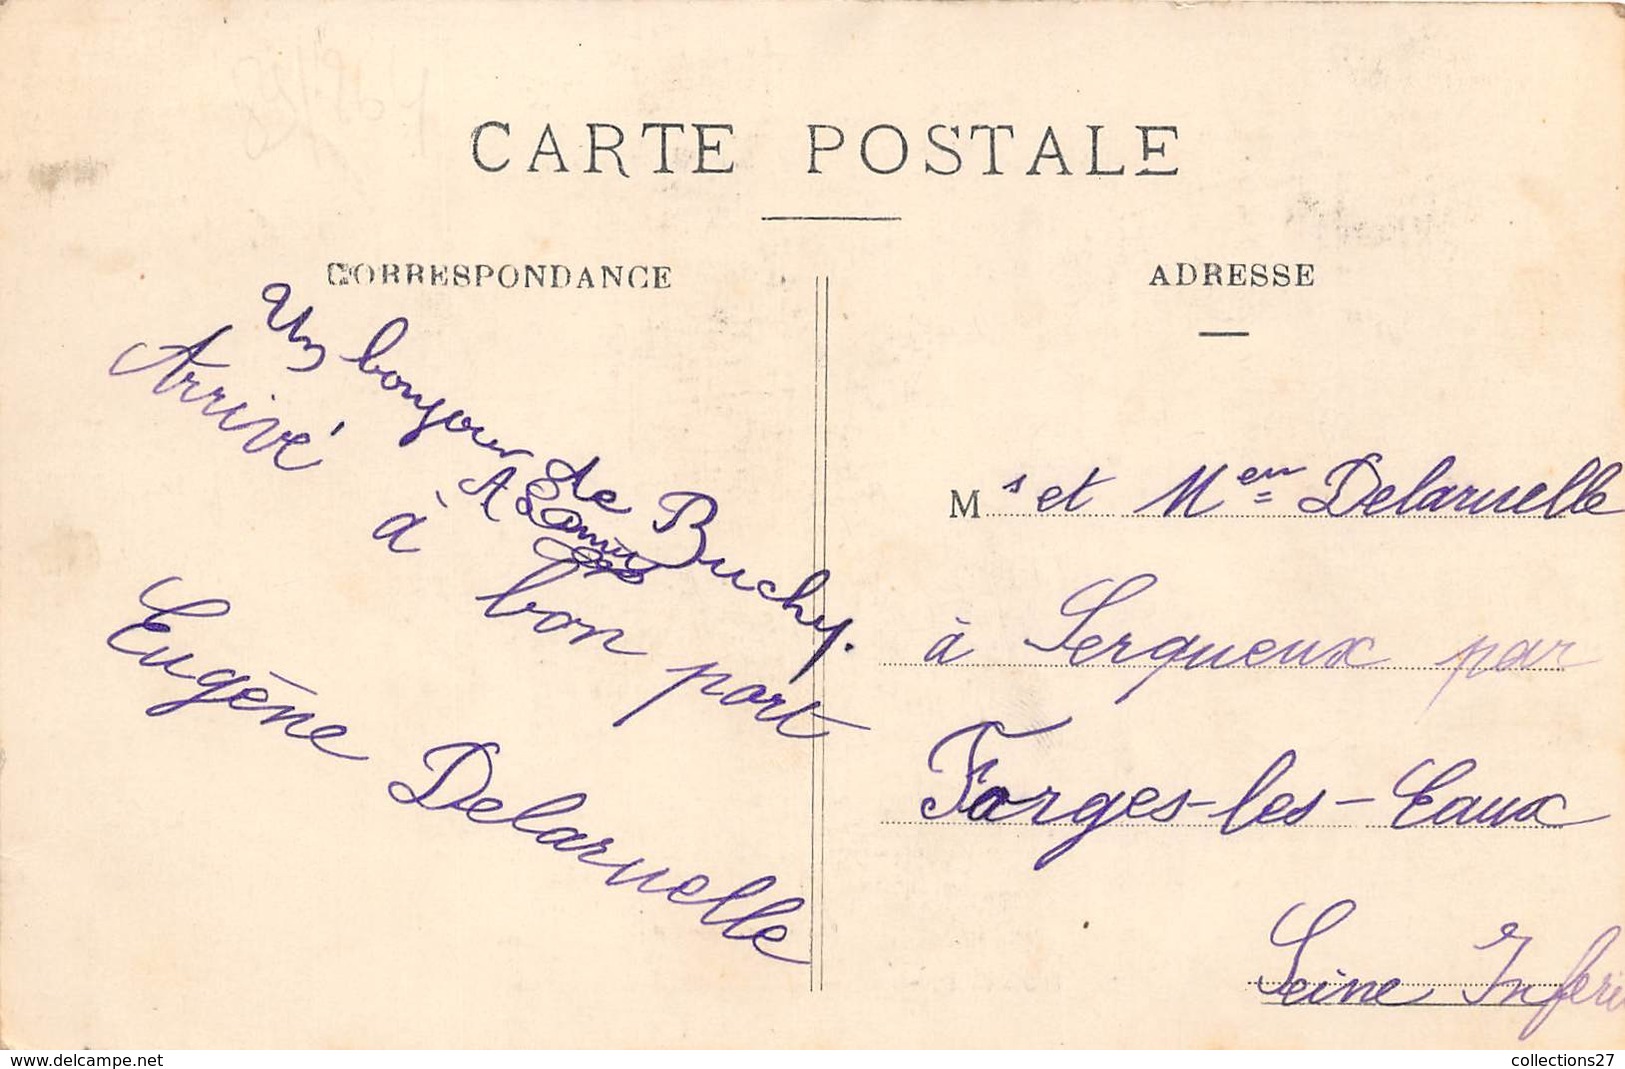 CARTE POSTALE
CORRESPONDANCE
ADRESSE
Un bonjour de Buchy.
Arrivé à bon port
Eugène Delaruelle
M rs et M em Delaruelle
à Serqueux par
Forges-les-Eaux
Seine Inferi
www.delcampe.net
collections27